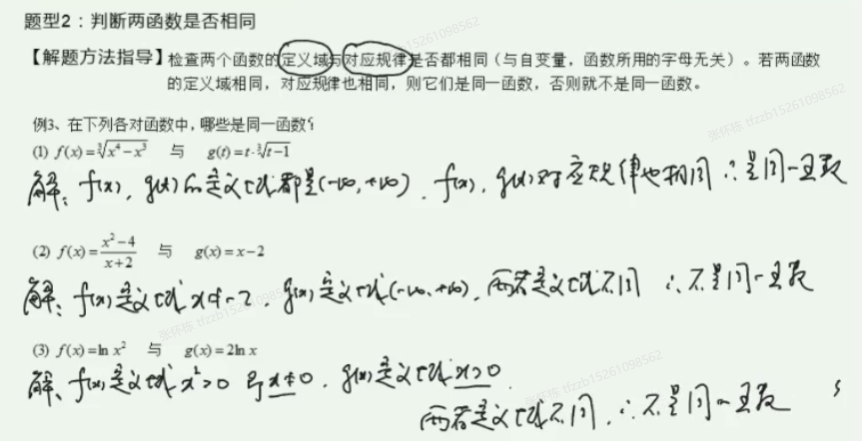 题型2：判断两函数是否相同
【解题方法指导】检查两个函数的定义域与对应规律是否都相同（与自变量，函数所用的字母无关）。若两函数
的定义域相同，对应规律也相同，则它们是同一函数，否则就不是同一函数。
例3、在下列各对函数中，哪些是同一函数？
(1) f(x)=∛(x⁴−x³) 与 g(t)=t·∛(t−1)
解：f(x)，g(t)的定义域都是(-∞,+∞)．f(x)，g(t)对应规律也相同 ∴是同一函数
(2) f(x)=(x²−4)/(x+2) 与 g(x)=x−2
解：f(x)定义域x≠-2，g(x)定义域(-∞,+∞)，两者定义域不同 ∴不是同一函数
(3) f(x)=ln x² 与 g(x)=2ln x
解：f(x)定义域x²>0 即x≠0．g(x)定义域x>0．
两者定义域不同，∴不是同一函数
张怀栋 tfzzb15261098562